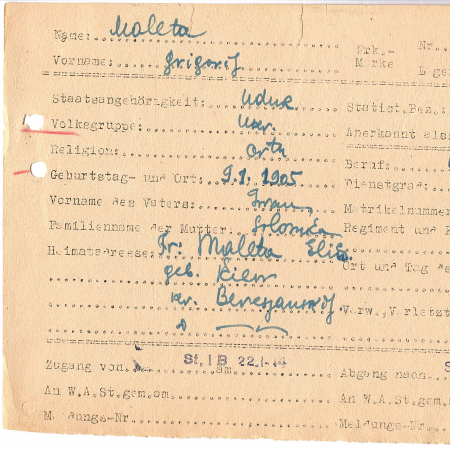 Name: Maleta Erk.- Nr.
Vorname: Grigorij Marke Lager
Staatsangehörigkeit: UdSSR Statist.Bez.:
Volksgruppe: Ukr. Anerkannt als:
Religion: orth Beruf:
Geburtstag- und Ort: 9.1.1905 Dienstgrad:
Vorname des Vaters: Iwan Matrikelnummer
Familienname der Mutter: Solomka Regiment und
Heimatadresse: Fr: Maleta Ort und Tag de
geb. Kiew
kr. Verw., Verletzt
St. I B 22.1.44
Zugang von am Abgang nach S
An W.A.St.gem.am An W.A.St.gem.
Meldungs-Nr Meldungs-Nr.